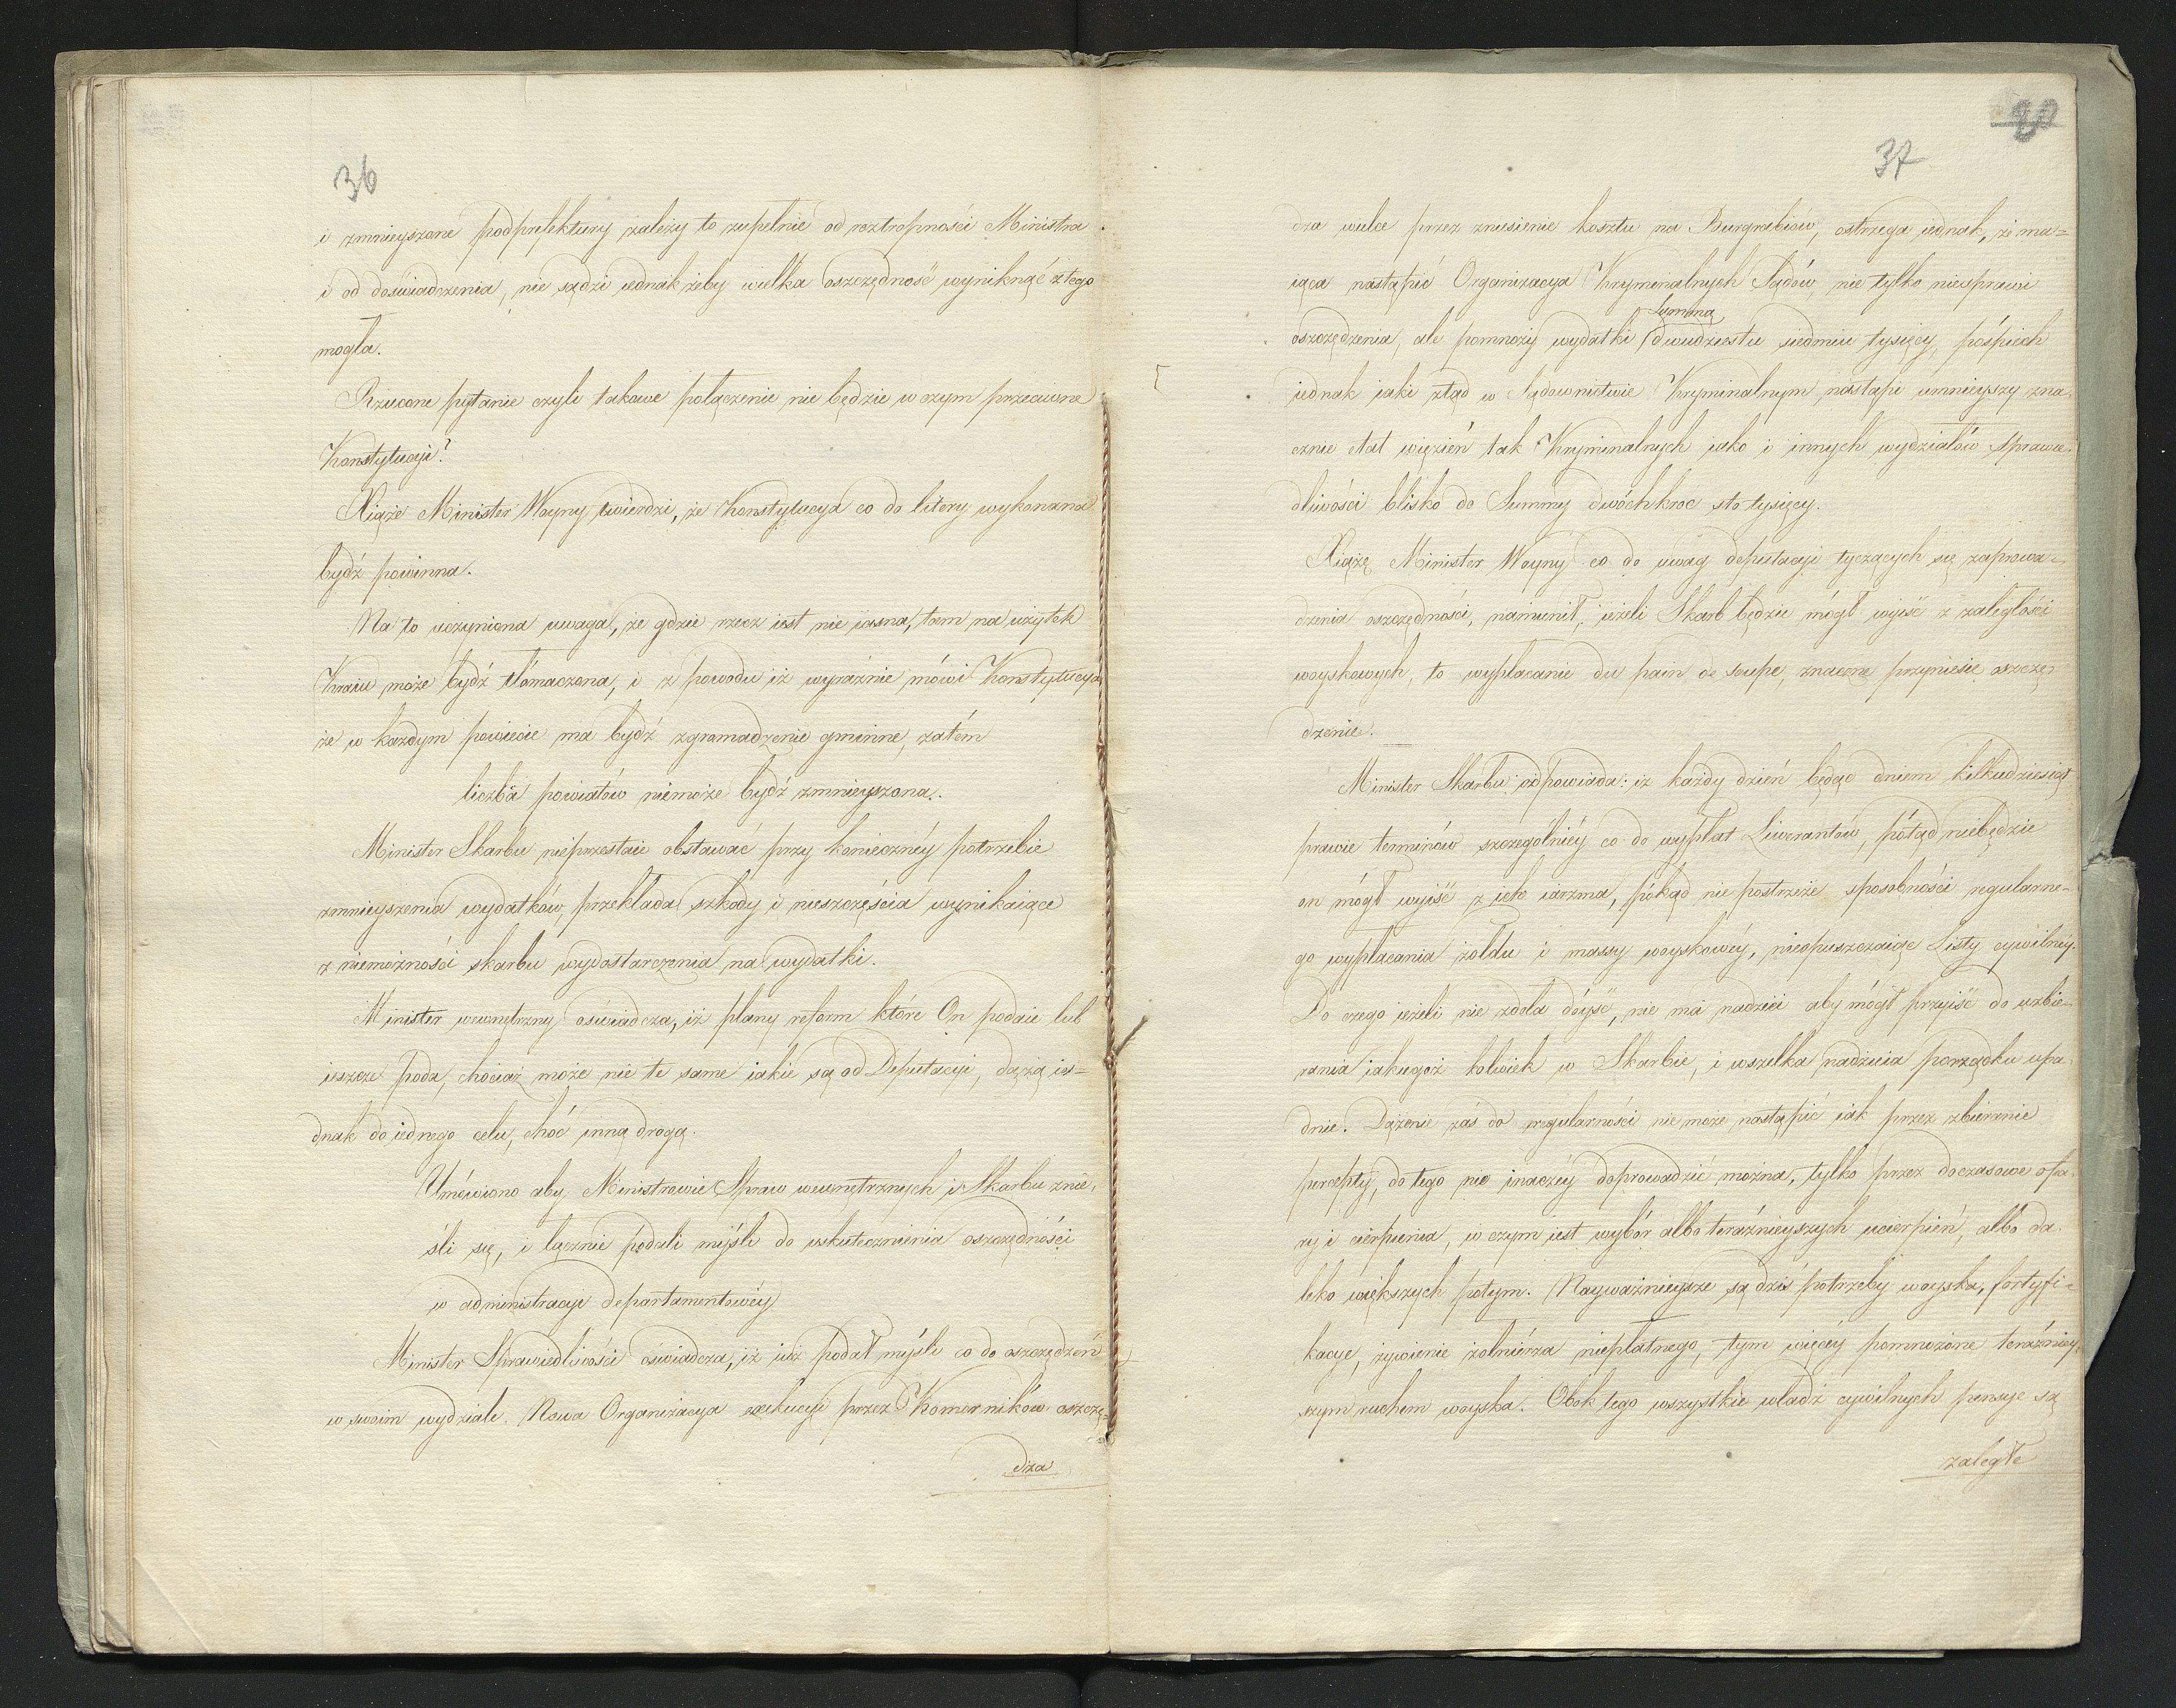 36
i zmnieyszone podprefektury zależy to zupełnie od roztropności Ministra
i od doświadczenia, nie sądzi iednak żeby wielka oszczędność wyniknąć z tego
mogła.
Rzucone pytanie czyli takowe połączenie nie będzie w czym przeciwne
Konstytucyi?
Xiąże Minister Woyny twierdzi, że Konstytucya co do litery wykonana
bydź powinna.
Na to uczyniona uwaga, że gdzie rzecz iest nie iasna, tam na użytek
Kraiu może bydź tłómaczona, i z powodu iż wyraźnie mówi Konstytucya
że w każdym powiecie ma bydź zgromadzenie gminne, zatém
liczba powiatów niemoże bydź zmnieyszona.
Minister Skarbu nieprzestaie obstawać przy konieczney potrzebie
zmnieyszenia wydatków, przekłada szkody i nieszczęścia wynikaiące
z niemożności skarbu wydostarczenia na wydatki.
Minister wewnętrzny oświadcza, iż plany reform które On podaie lub
ieszcze poda, chociaż może nie te same iakie są od Deputacyi, dążą ie-
dnak do iednego celu, choć inną drogą.
Umówiono aby Ministrowie Spraw wewnętrznych i Skarbu znie-
śli się, i łącznie podali myśli do uskutecznienia oszczędności
w administracyi departamentowéy
Minister Sprawiedliwości oświadcza, iż iuż podał myśli co do oszczędzeń
w swoim wydziale. Nowa Organizacya exekucyi przez Komorników oszczę-
dza
20
37
dza wiele przez zniesienie kosztu na Burgrabiów, ostrzega iednak, że ma-
iąca nastąpić Organizacya Kryminalnych Sądów, nie tylko niesprawi
Summą
oszczędzenia, ale pomnoży wydatki dwudziestu siedmiu tysięcy, pośpiech
iednak iaki ztąd w Sądownictwie Kryminalnym nastąpi umnieyszy zna-
cznie etat więzień tak Kryminalnych iako i innych wydziałów sprawie-
dliwości blisko do Summy dwóchkroć sto tysięcy.
Xiążę Minister Woyny co do uwag deputacyi tyczących się zaprowa-
dzenia oszczędności, namienił, ieżeli Skarb będzie mógł wyiść z zaległości
woyskowych, to wypłacanie du pain de soupe, znaczne przyniesie oszczę-
dzenie.
Minister Skarbu odpowiada: iż każdy dzień będąc dniem kilkudziesiąt
prawie terminów szczególniéy co do wypłat Liwerantów, pótąd niebędzie
on mógł wyiść z ich iarzma, pókąd nie postrzeże sposobności regularne-
go wypłacania żołdu i massy woyskowéy, nieopuszczaiąc Listy cywilnéy.
Do czego ieżeli nie zdoła doyść, nie ma nadziei aby mógł przyiść do uzbie-
rania iakiegoż kolwiek w Skarbie, i wszelka nadzieia porządku upa-
dnie. Dążenie zaś do regularności nie może nastąpić iak przez zbieranie
percepty, do tego nie inaczéy doprowadzić można, tylko przez doczasowe ofia-
ry i cierpienia, w czym iest wybór albo teraźnieyszych ucierpień, albo da-
leko większych potym. Nayważnieysze są dziś potrzeby woyska, fortyfi-
kacye, żywienie żołniérza niepłatnego, tym więcéy pomnożone teraźniey-
szym ruchem woyska. Obok tego wszystkie władz cywilnych pensye są
zaległe